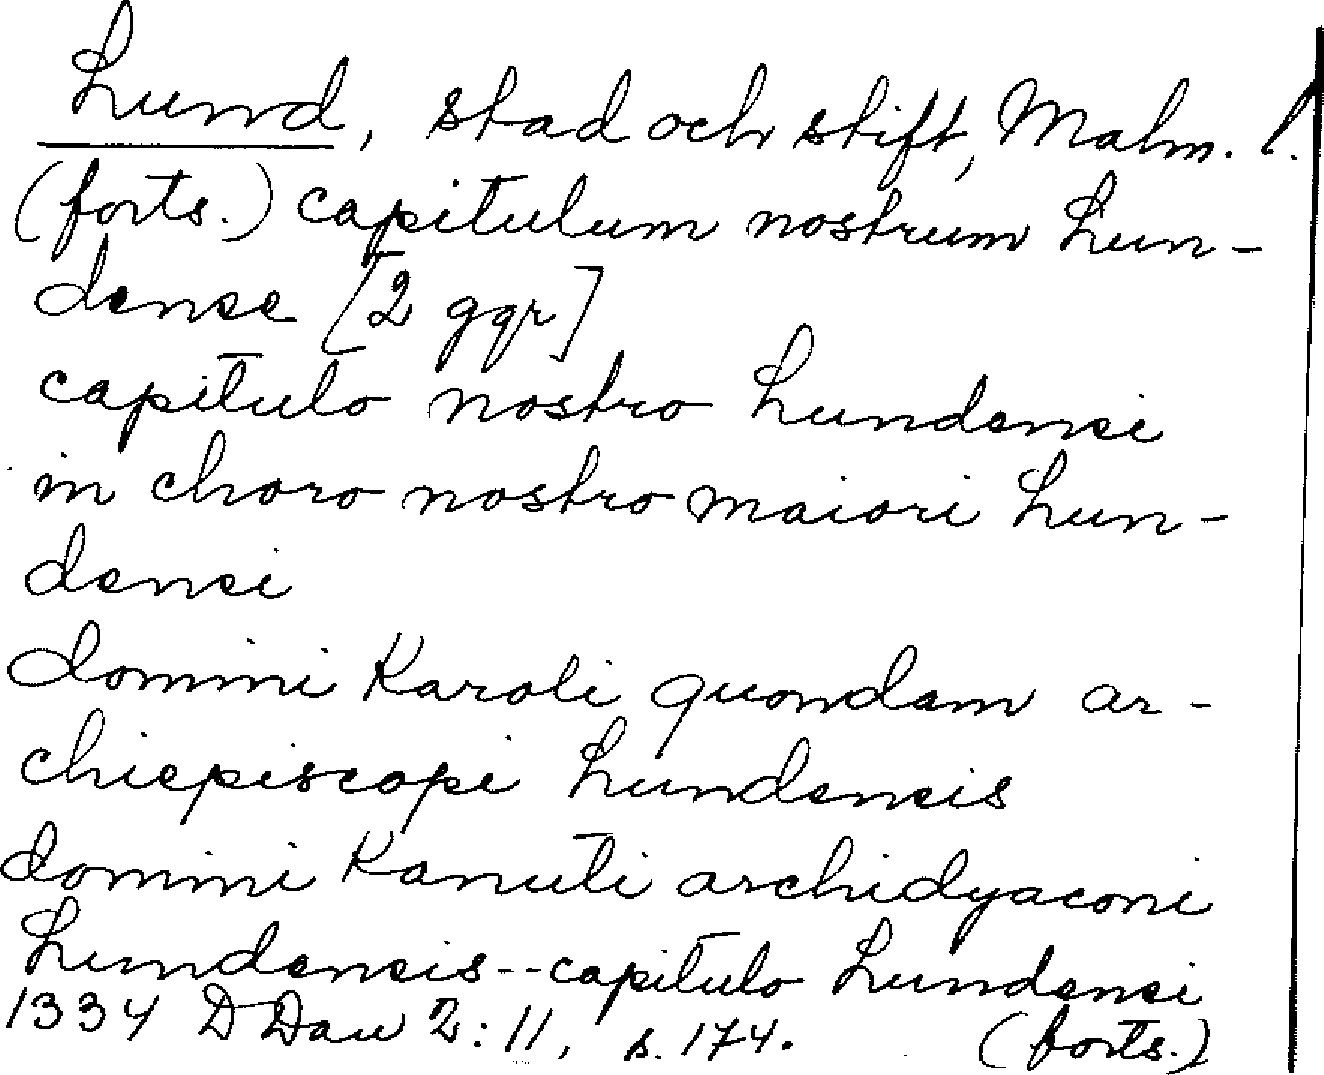 Lund, stad och stift, Malm. l.
(forts.) capitulum nostrum Lun-
dense [2 ggr]
capitulo nostro Lundensi
in choro nostro maiori Lun-
densi
domini Karoli quondam ar-
chiepiscopi Lundensis
domini Kanuti archidyaconi
Lundensis -- capitulo Lundensi
1334 DDan 2:11, s. 174. (forts.)